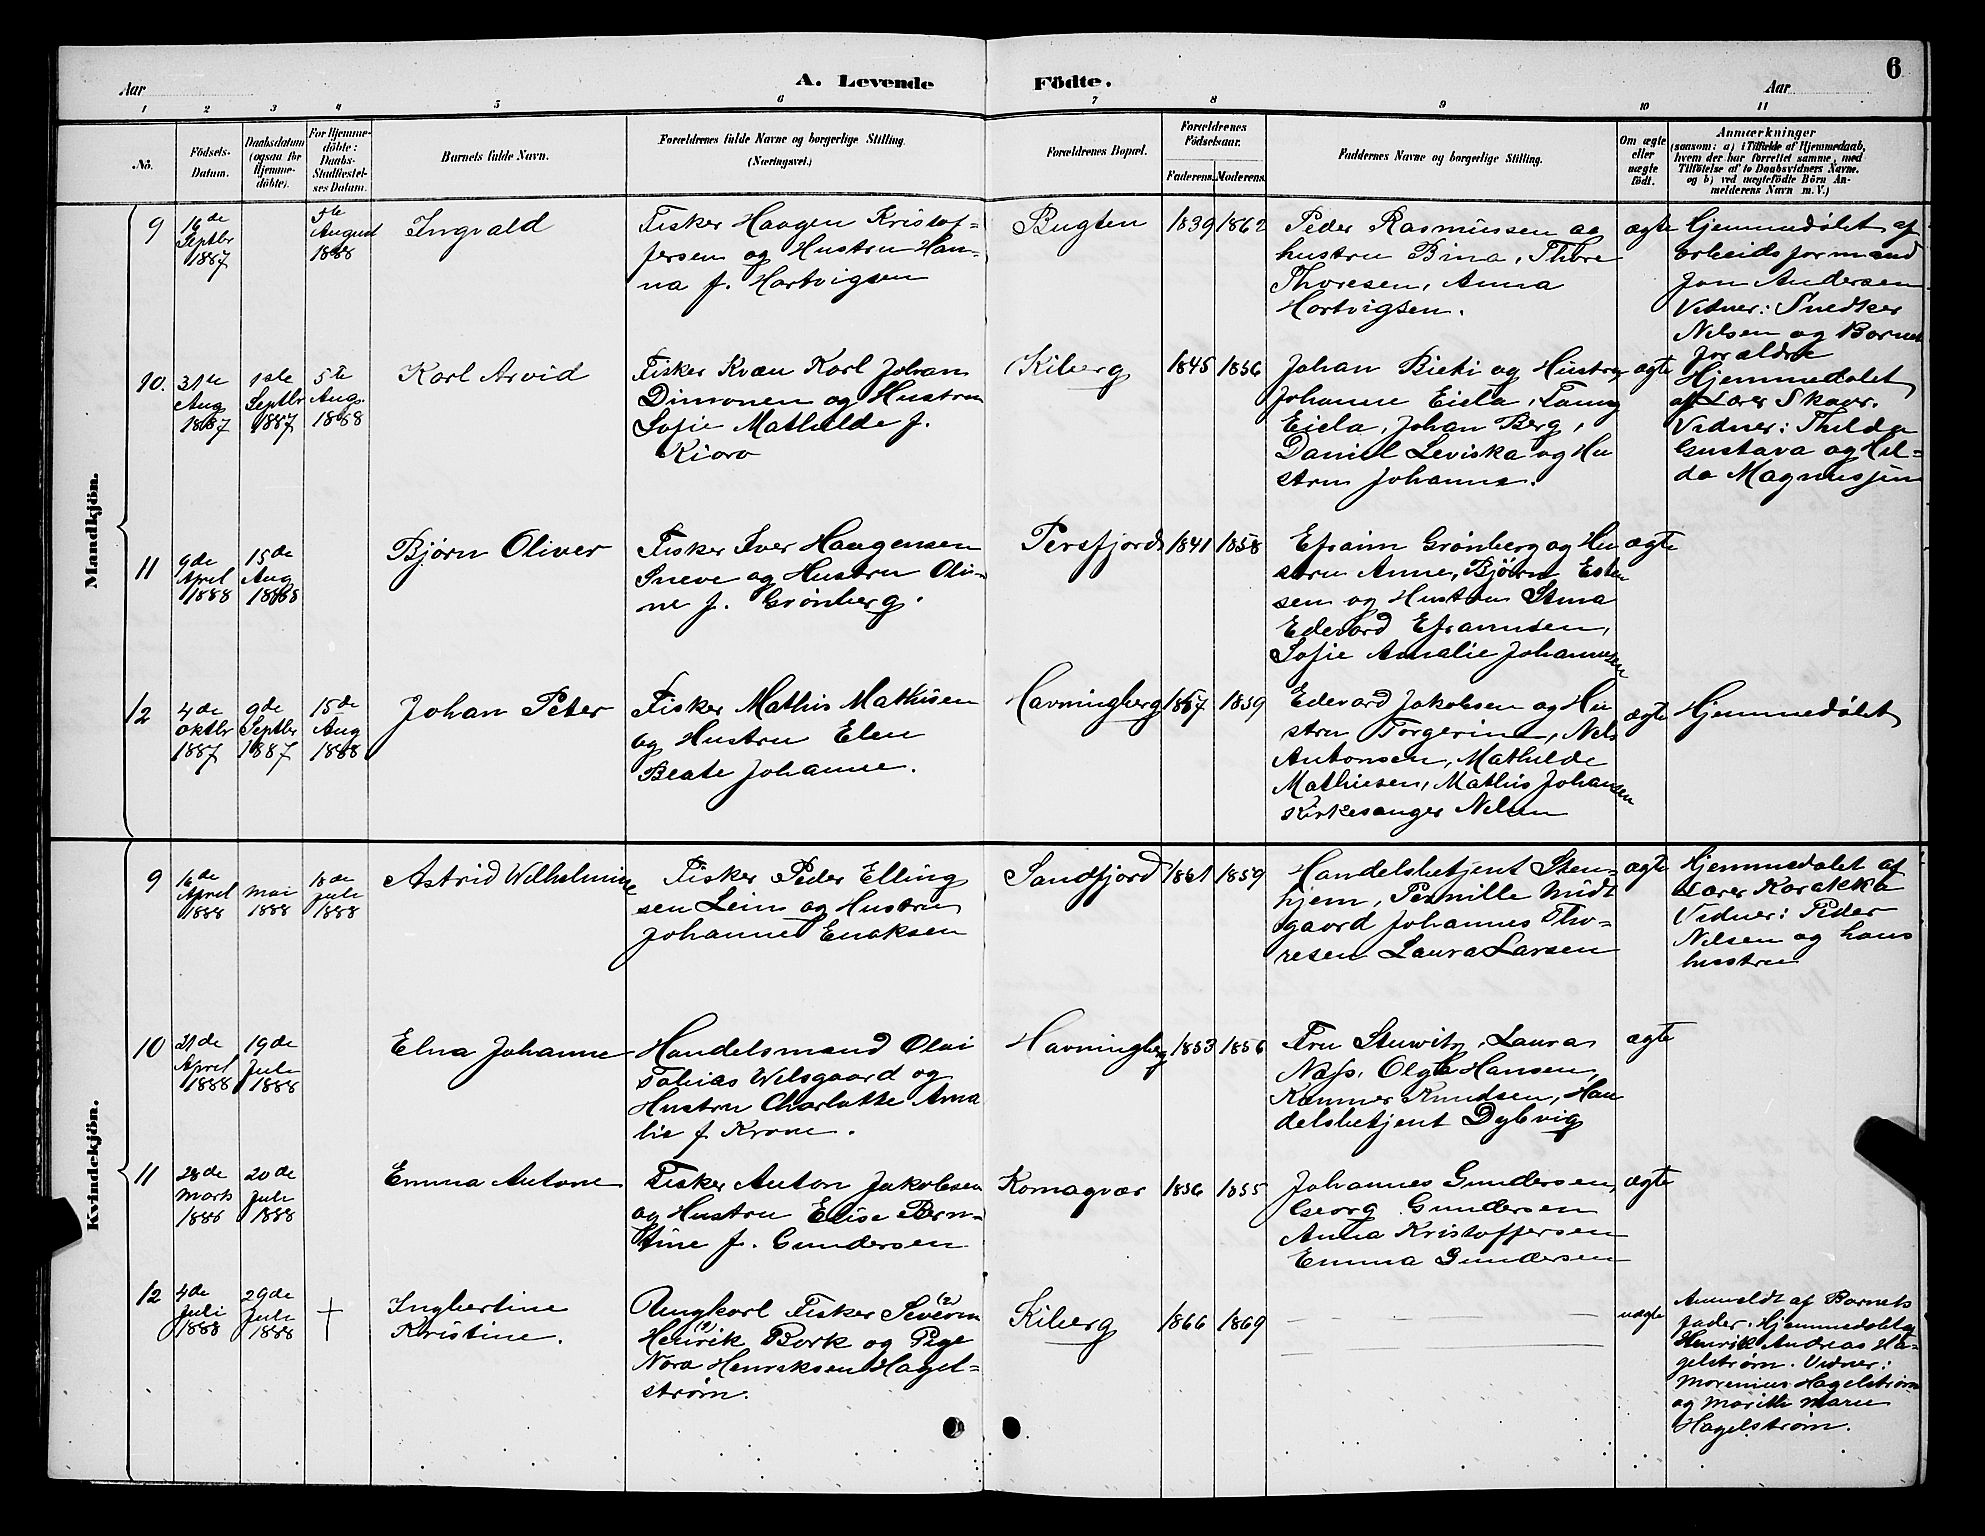 6
A. Levende Födte.
Aar
Aar
1 2 3 4 5 6 7 8 9 10 11
No.
Födsels-
Datum.
Daabsdatum
(ogsaa for
Hjemme-
döbte).
For Hjemme-
döbte:
Daabs-
Stadfæstel-
ses Datum.
Barnets fulde Navn.
Forældrenes fulde Navne og borgerlige Stilling.
(Næringsvei.)
Forældrenes Bopæl.
Forældrenes
Födselsaar.
Faderens. Moderens.
Faddernes Navne og borgerlige Stilling.
Om ægte
eller
uægte
födt.
Anmærkninger
(saasom: a) i Tilfælde af Hjemmedaab,
hvem der har forrettet samme, med
Tilföielse af to Daabsvidners Navne.
og b) ved uægtefödte Börn An-
melderens Navn m. V.)
Mandkjön.
9
16de
Septbr
1887
5te
August
1888
Ingvald
Fisker Haagen Kristof-
fersen og Hustru Han-
na f. Hartvigsen
Bugten
1839
1862
Peder Rasmussen og
hustru Bina, Thore
Thoresen, Anna
Hartvigsen.
ægte
Hjemmedøbt af
arbeidsformand
Jon Andersen
Vidner: Snedker
Nilsen og Barnets
forældre
10.
31te
Aug
1887
1ste
Septbr
1887
5te
Aug.
1888
Karl Arvid
Fisker Kvæn Karl Johan
Dimonen og Hustru
Sofie Mathilde f.
Kioro
Kiberg
1845
1856
Johan Pieti og Hustru
Johanne Eiela, Fanny
Eiela, Johan Berg,
Daniel Leviska og Hu
stru Johanna.
ægte
Hjemmedøbt
af Lærer Skavr.
Vidner: Thilda
Gustava og Hil-
da Magnussen
11
9de
April
1888
15de
Aug
1888
Bjørn Oliver
Fisker Iver Haagensen
Sneve og Hustru Oli-
ne f. Grønberg.
Persfjord
1841
1858
Efraim Grønberg og Hu
stru Anne, Bjørn Esten
sen og Hustru Stina
Edevard Efraimsen,
Sofie Amalie Johannesen
ægte
12
4de
Oktbr
1887
9de
Septbr
1887
15de
Aug
1888
Johan Peter
Fisker Mathis Mathisen
og Hustru Elen
Beate Johanne.
Havningberg
1857
1859
Edevard Jakobsen og Hu
stru Torgerine, Nils
Antonsen, Mathilde
Mathiesen, Mathis Johansen
Kirkesanger Nilsen
ægte
Hjemmedøbt
Kvindekjön.
9
16de
April
1888
Mai
1888
18de
Juli
1888
Astrid Wilhelmine
Fisker Peder Elling
sen Lein og Hustru
Johanne Enoksen
Sandfjord
1861
1859
Handelsbetjent Sten-
hjem, Pernille Midt
gaard Johannes Tho-
resen Laura Larsen
ægte
Hjemmedøbt af
Lærer Karakka
Vidner: Peder
Nilsen og hans
hustru
10
21de
April
1888
19de
Juli
1888
Elna Johanne
Handelsmand Olai
Tobias Wilsgaard og
Hustru Charlotte Ama
lie f Krane.
Havningberg
1853
1856
Fru Stuwitz, Laura
Næss, Olga Hansen,
Kræmmer Knudsen, Han
delsbetjent Dybvig
ægte
11
28de
Marts
1886
20de
Juli
1888
Emma Antone
Fisker Anton Jakobsen
og Hustru Elise Bern-
tine f. Gundersen
Komagvær
1856
1855
Johannes Gundersen,
Georg Gundersen
Anna Kristoffersen
Emma Gundersen
ægte
12
4de
Juli
1888
29de
Juli
1888
†
Ingbertine
Kristine.
Ungkarl Fisker Severin (2)
Henrik (1) Bork og Pige
Nora Henriksen Hagel-
strøm.
Kiberg
1866
1869
uægte
Anmeldt af Barnets
fader. Hjemmedøbt af
Henrik Andreas Ha-
gelstrøm. Vidner:
Morenius Hagelstrøm
og Marith Marie
Hagelstrøm.